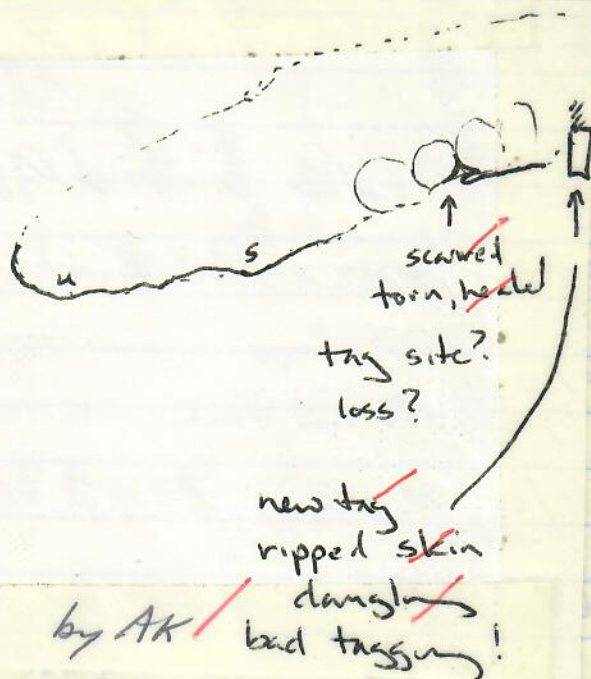 u
s
scarred
torn, healed
tag site?
loss?
new tag
ripped skin
dangling
by AK
bad tagging!